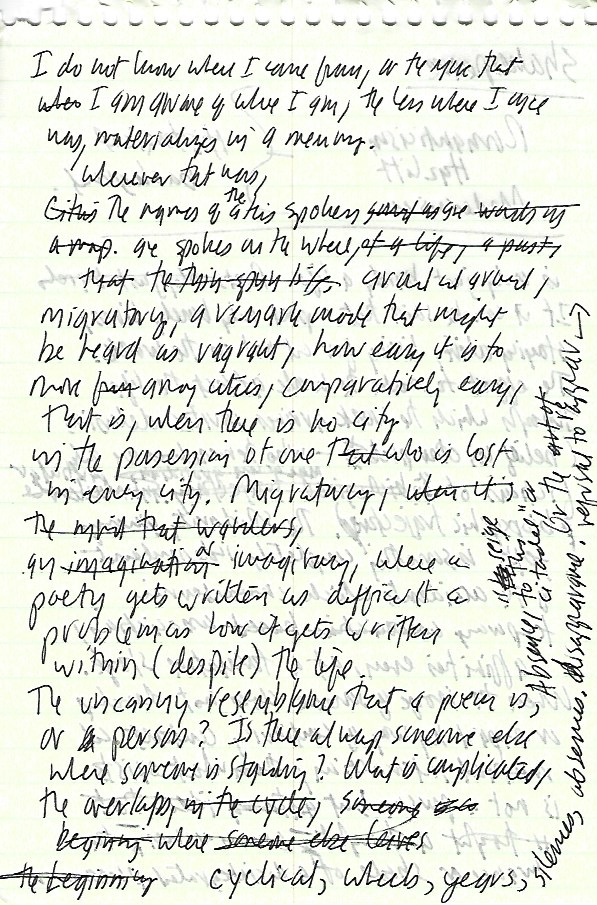 I do not know where I came from, or the more that
I am aware of where I am, the less where I once
was, materializes in a memory.
wherever that was,
Cities The names of the cities spoken
a map. are spoken on the where, of a life, a past,
that the thin spun life. around and around,
migratory, a remark made that might
be heard as vagrant, how easy it is to
move among cities, comparatively easy,
that is, when there is no city
in the possession of one that who is lost
in every city. Migratory, when it is
the mind that wanders,
an imagination or imaginary, where a
poetry gets written as difficult a
problem as how it gets written
within (despite) the life.
The uncanny resemblance that a poem is,
or a person? Is there always someone else
where someone is standing? What is complicated,
the overlaps, in the cycle, someone
beginning where someone else leaves
the beginning cyclical, wheels, years,
silences, absences, disappearance. refusal to appear →
Absences to this, or
"siege
a citadel,"
Or the art of